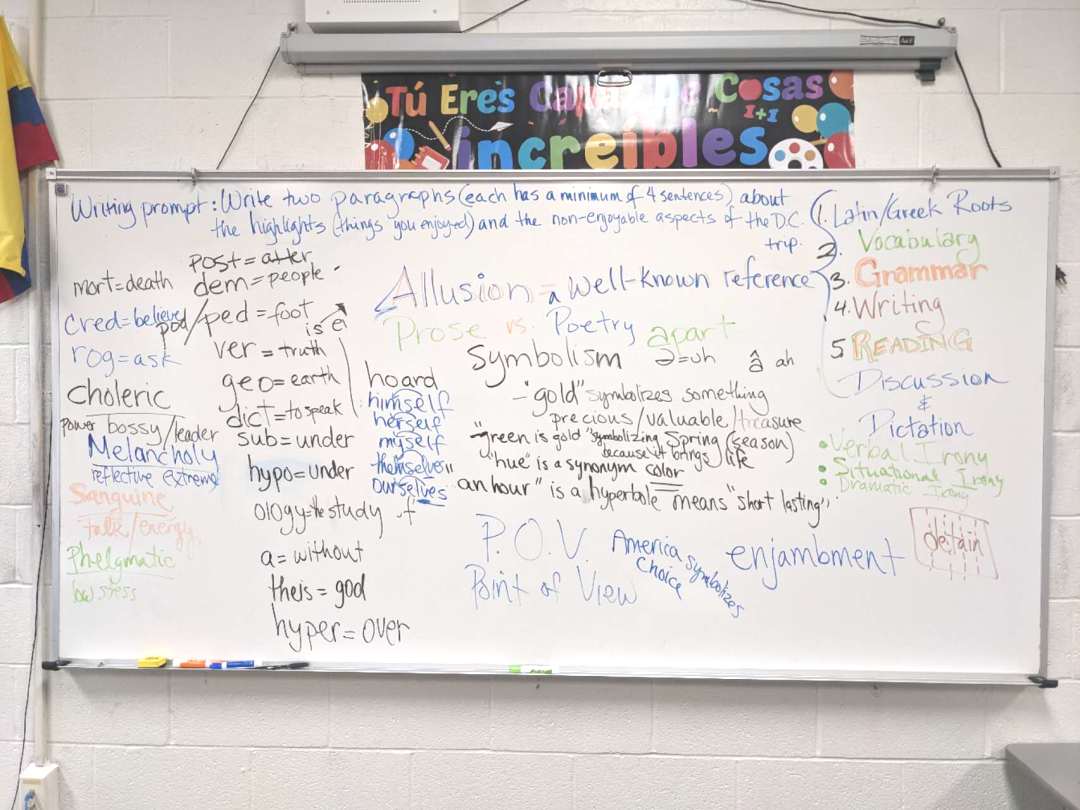 Tú Eres Capaz de Cosas
1+1
increíbles
Writing prompt: Write two paragraphs (each has a minimum of 4 sentences) about
the highlights (things you enjoyed) and the non-enjoyable aspects of the D.C.
trip.
mort=death
cred=believe
rog=ask
Choleric
Power bossy/leader
Melancholy
reflective extreme
Sanguine
talk/energy
Phelgmatic
low stress
post=after
dem=people
pod/ped=foot
is e
ver=truth
geo=earth
dict=to speak
sub=under
hypo=under
ology=the study of
a=without
theis=god
hyper=over
hoard
himself
herself
myself
themselves
ourselves
Allusion = a well-known reference
Prose vs. Poetry apart
Symbolism
ə=uh
â ah
- "gold" symbolizes something
precious/valuable/treasure
- "green is gold" symbolizing Spring (season)
because it brings life
"hue" is a synonym color
"an hour" is a hyperbole means "short lasting"
P.O.V.
Point of View
America symbolizes
Choice
enjambment
1. Latin/Greek Roots
2. Vocabulary
3. Grammar
4. Writing
5 READING
Discussion
&
Dictation
• Verbal Irony
• Situational Irony
• Dramatic Irony
detain